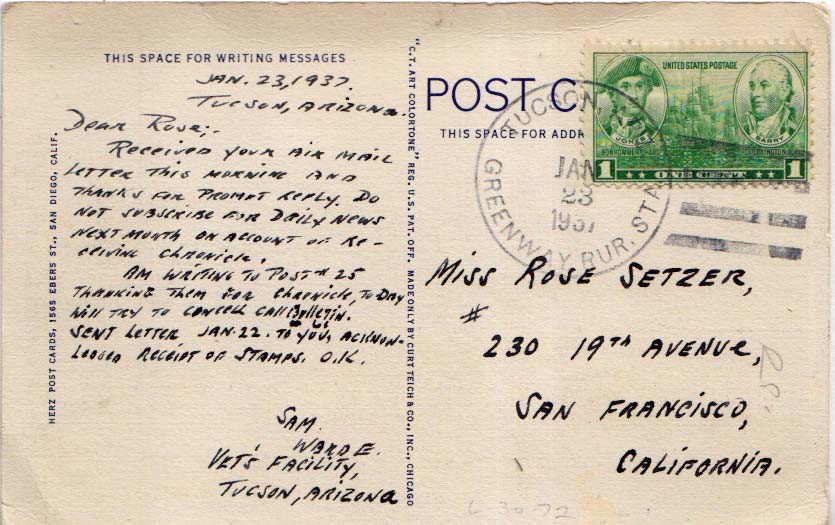 THIS SPACE FOR WRITING MESSAGES
JAN. 23, 1937.
TUCSON, ARIZONA.
Dear Rose;.
Received your AIR MAIL
Letter this morning and
thanks for prompt reply. Do
not subscribe for Daily News
next month on account of Re-
ceiving Chronicle.
Am writing to Post # 25
thanking them for Chronicle, to-day
will try to cancell Call Bulletin.
Sent letter Jan. 22. to you, acknow-
ledged receipt of stamps. O.K.
Sam.
Ward E.
Vet's Facility,
Tucson, Arizona
HERZ POST CARDS, 1565 EBERS ST., SAN DIEGO, CALIF.
"C.T. ART COLORTONE" REG. U.S. PAT. OFF. MADE ONLY BY CURT TEICH & CO., INC., CHICAGO
POST C
THIS SPACE FOR ADDR
UNITED STATES POSTAGE
JONES
BARRY
BON HOMME RICHARD
1 ONE CENT 1
TUCSON,
JAN
23
1937
GREENWAY RUR. STA.
Miss Rose Setzer,
#
230 19th Avenue,
San Francisco,
California.